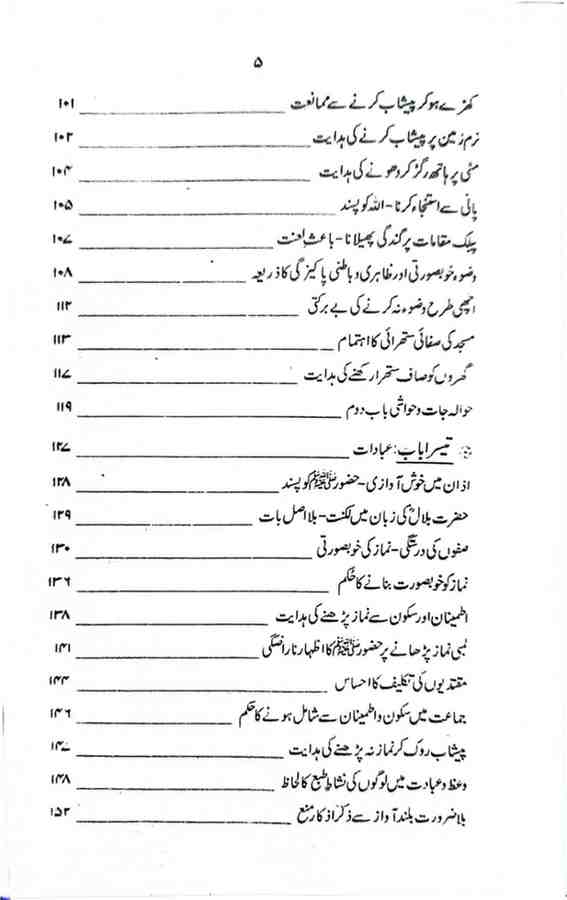 ۵
کھڑے ہو کر پیشاب کرنے سے ممانعت ۱۰۱
نرم زمین پر پیشاب کرنے کی ہدایت ۱۰۳
مٹی پر ہاتھ رگڑ کر دھونے کی ہدایت ۱۰۴
پانی سے استنجاء کرنا - اللہ کو پسند ۱۰۵
پبلک مقامات پر گندگی پھیلانا - باعثِ لعنت ۱۰۷
وضوء خوبصورتی اور ظاہری و باطنی پاکیزگی کا ذریعہ ۱۰۸
اچھی طرح وضوء نہ کرنے کی بے برکتی ۱۱۲
مسجد کی صفائی ستھرائی کا اہتمام ۱۱۳
گھروں کو صاف ستھرا رکھنے کی ہدایت ۱۱۷
حوالہ جات و حواشی باب دوم ۱۱۹
تیسرا باب: عبادات ۱۲۷
اذان میں خوش آوازی - حضور ﷺ کو پسند ۱۲۸
حضرت بلالؓ کی زبان میں لکنت - بلا اصل بات ۱۲۹
صفوں کی درستگی - نماز کی خوبصورتی ۱۳۰
نماز کو خوبصورت بنانے کا حُکم ۱۳۶
اطمینان اور سکون سے نماز پڑھنے کی ہدایت ۱۳۸
لمبی نماز پڑھانے پر حضور ﷺ کا اظہار ناراضگی ۱۴۱
مقتدیوں کی تکلیف کا احساس ۱۴۴
جماعت میں سکون و اطمینان سے شامل ہونے کا حکم ۱۴۶
پیشاب روک کر نماز نہ پڑھنے کی ہدایت ۱۴۷
وعظ و عبادت میں لوگوں کی نشاطِ طبع کا لحاظ ۱۴۸
بلا ضرورت بلند آواز سے ذکر اذکار منع ۱۵۲